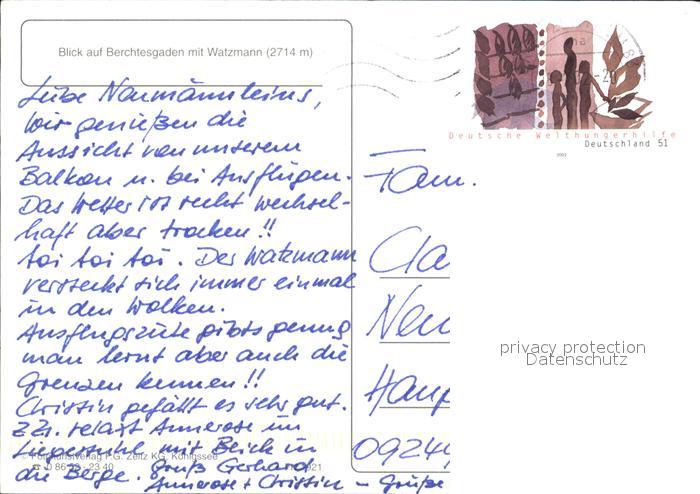 Blick auf Berchtesgaden mit Watzmann (2714 m)
Liebe Naumännleins,
wir genießen die
Aussicht von unserem
Balkon u. bei Ausflügen.
Das Wetter ist recht wechsel-
haft aber trocken !!
toi toi toi. Der Watzmann
versteckt sich immer einmal
in den Wolken.
Ausflugsziele gibts genug
man lernt aber auch die
Grenzen kennen !!
Christin gefällt es sehr gut.
Zz. relaxt Annerose im
Liegestuhl mit Blick in
die Berge. Gruß Gerhard
Annerose + Christin – Grüße
Fotokunstverlag F.G. Zeitz KG, Königssee
23 40
921
Deutsche Welthungerhilfe
Deutschland 51
2002
Fam.
Cla
Neu
Haup
0924
privacy protection
Datenschutz